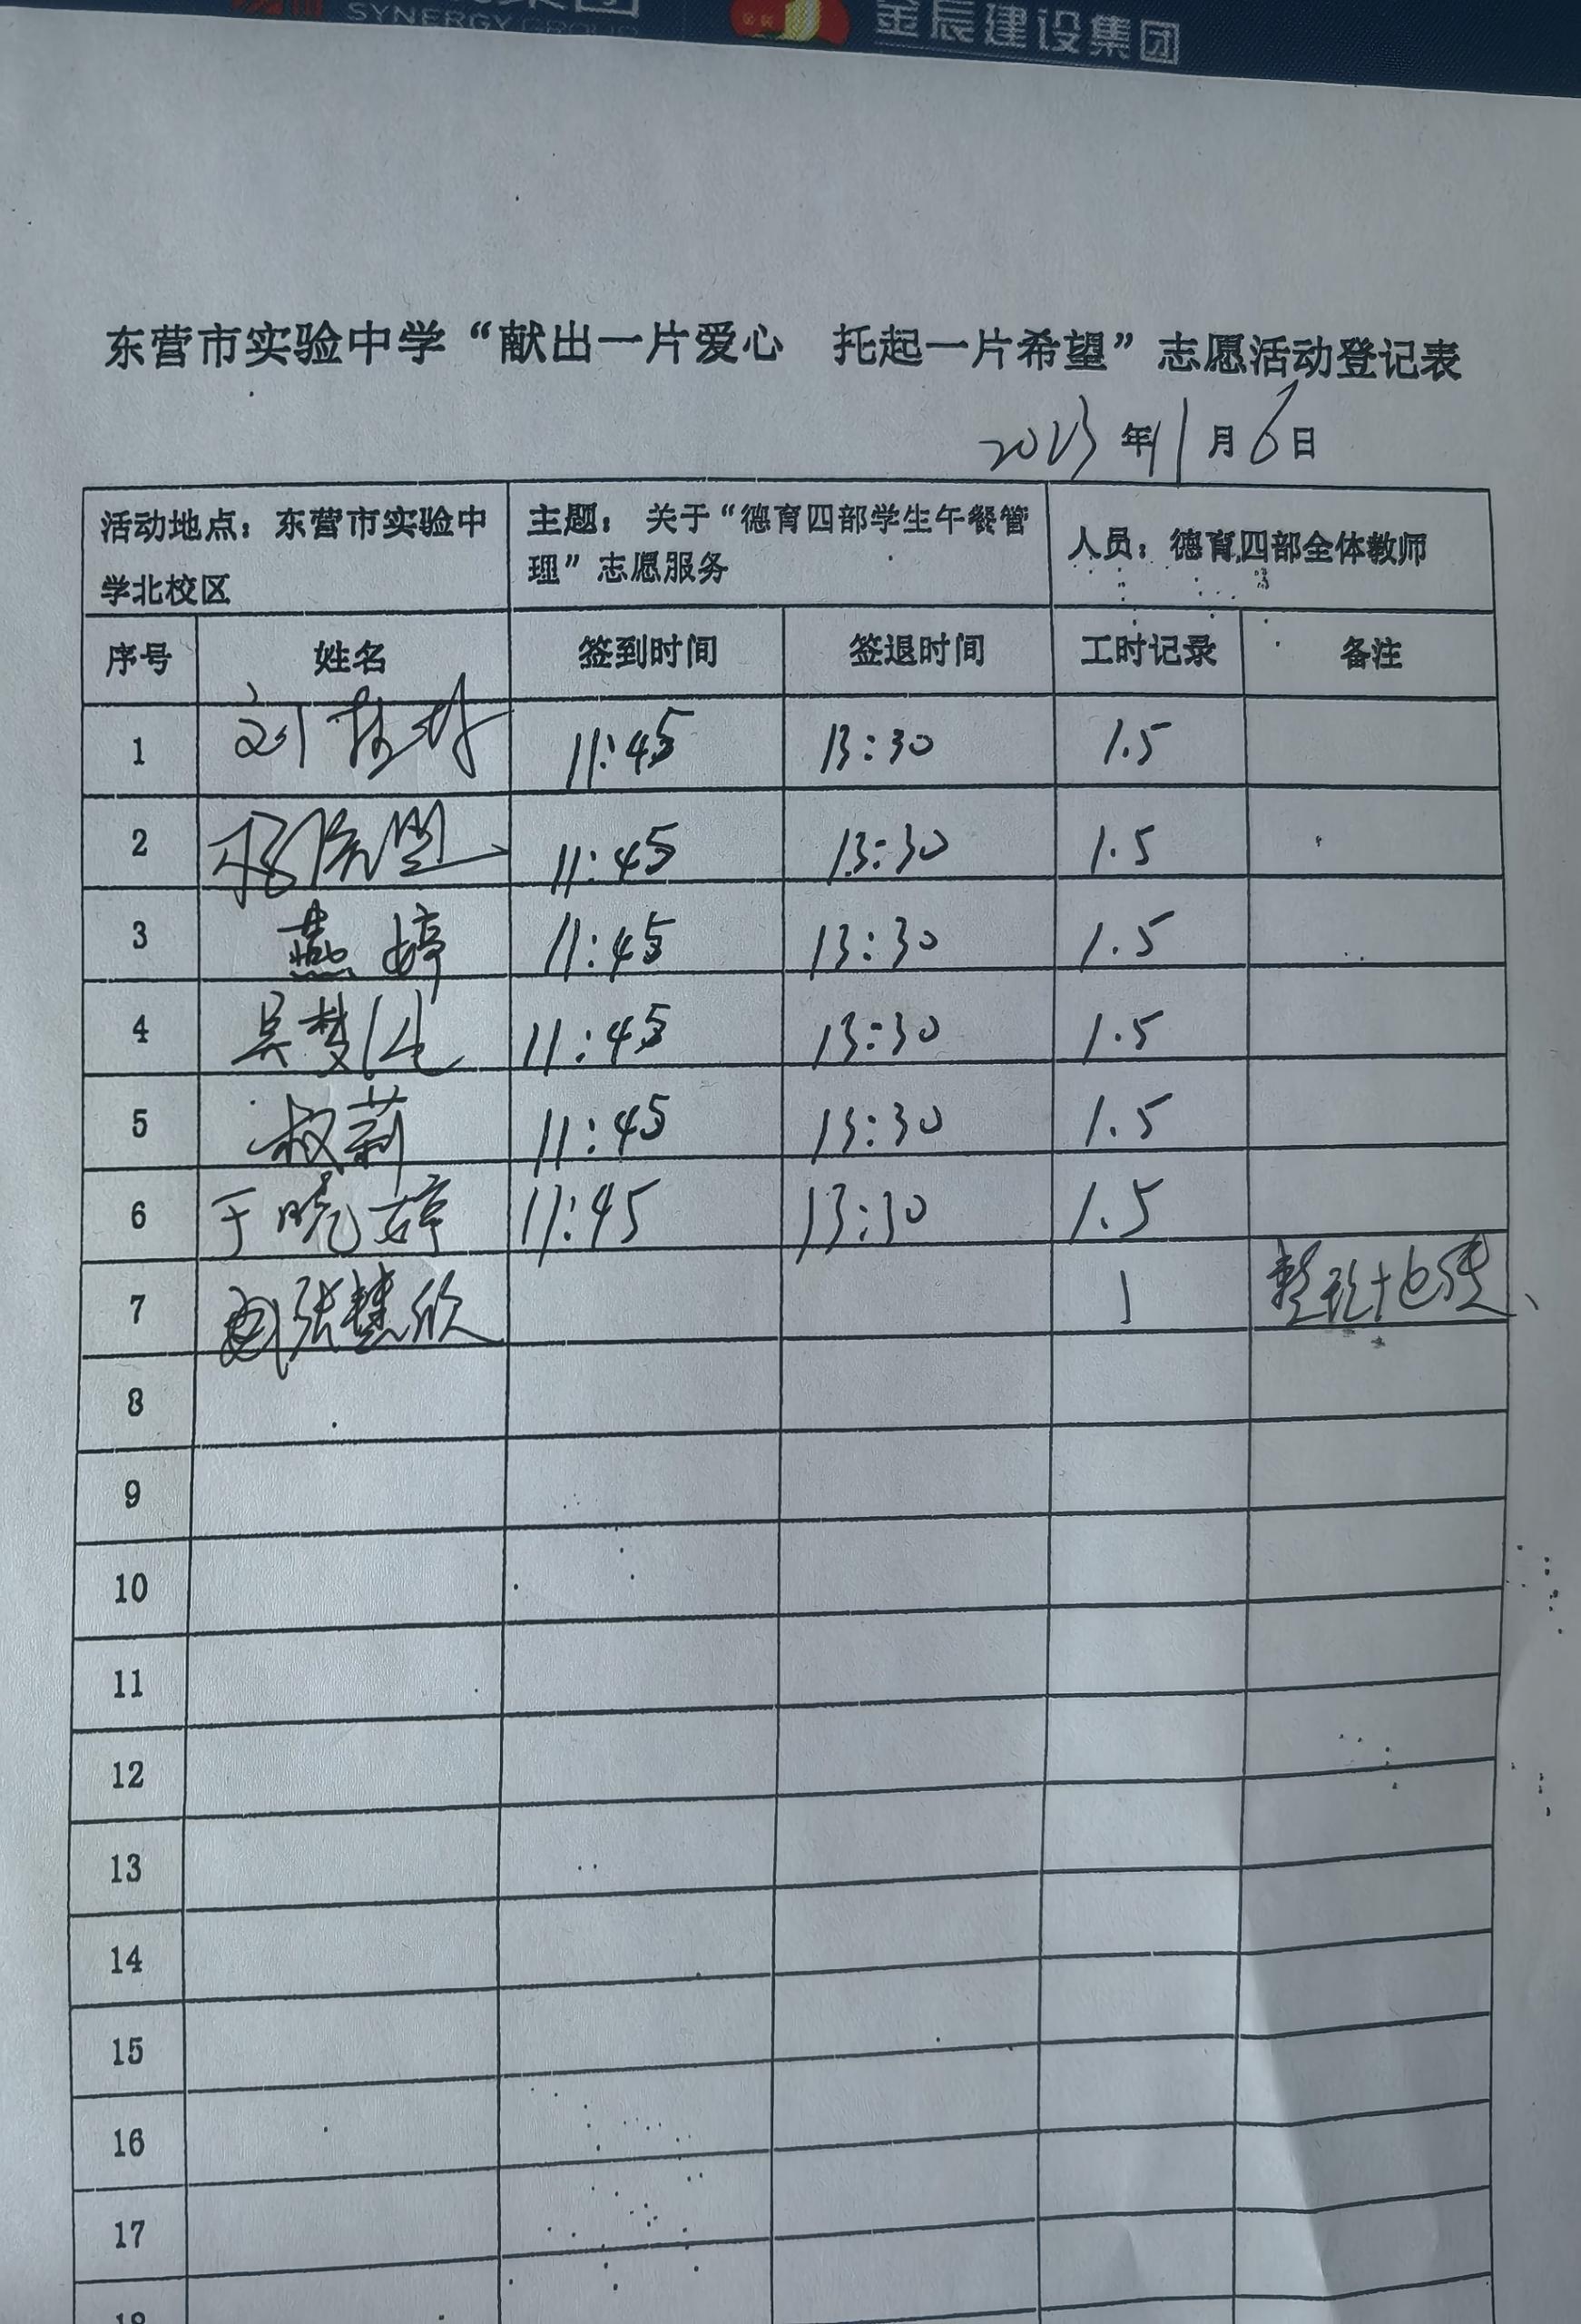 SYNERGY GROUP
金辰建设集团
东营市实验中学“献出一片爱心 托起一片希望”志愿活动登记表
2023年11月6日
活动地点：东营市实验中学北校区 主题：关于“德育四部学生午餐管理”志愿服务 人员：德育四部全体教师
序号 姓名 签到时间 签退时间 工时记录 备注
1 刘 11:45 13:30 1.5
2 11:45 13:30 1.5
3 燕婷 11:45 13:30 1.5
4 吴梦 11:45 13:30 1.5
5 莉 11:45 13:30 1.5
6 于晓婷 11:45 13:30 1.5
7 张慧欣 1
8
9
10
11
12
13
14
15
16
17
18